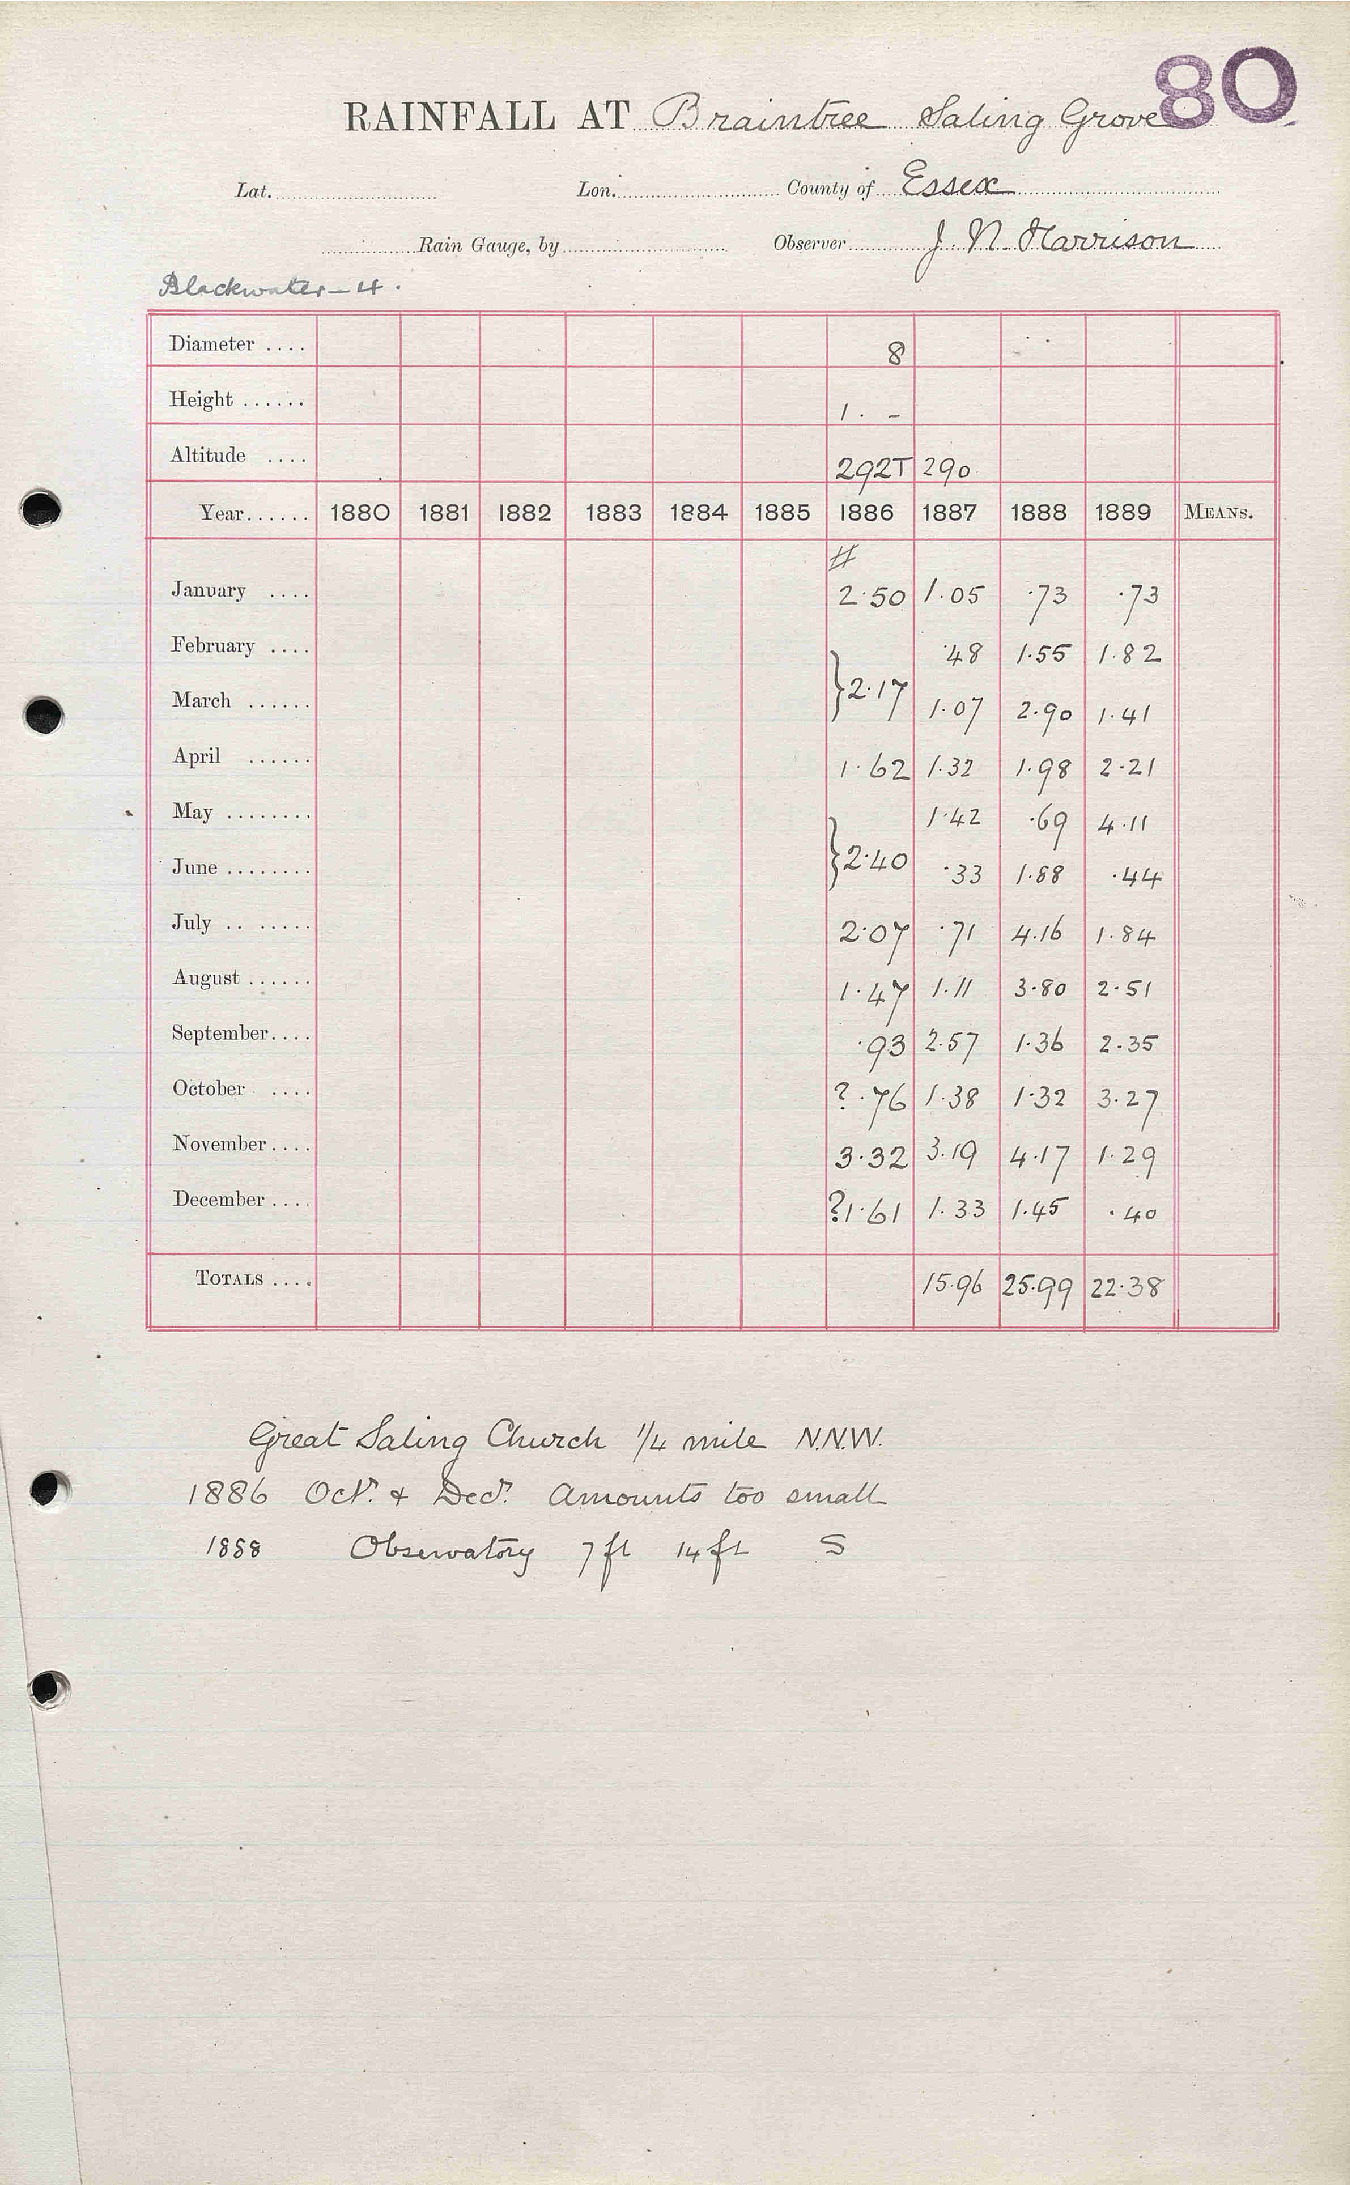 80
RAINFALL AT Braintree Saling Grove
Lat. Lon. County of Essex
Rain Gauge, by Observer J. N Harrison
Blackwater - 4.
Diameter .... 8
Height ...... 1. -
Altitude .... 292T 290
Year...... 1880 1881 1882 1883 1884 1885 1886 1887 1888 1889 MEANS.
#
January .... 2.50 1.05 .73 .73
February .... .48 1.55 1.82
March ...... }2.17 1.07 2.90 1.41
April ...... 1.62 1.32 1.98 2.21
May ........ 1.42 .69 4.11
June ........ }2.40 .33 1.88 .44
July .. ..... 2.07 .71 4.16 1.84
August ...... 1.47 1.11 3.80 2.51
September.... .93 2.57 1.36 2.35
October .... ? .76 1.38 1.32 3.27
November.... 3.32 3.19 4.17 1.29
December .... ?1.61 1.33 1.45 .40
TOTALS .... 15.96 25.99 22.38
Great Saling Church 1/4 mile N.N.W.
1886 Octr. & Decr. Amounts too small
1888 Observatory 7 ft 14 ft S